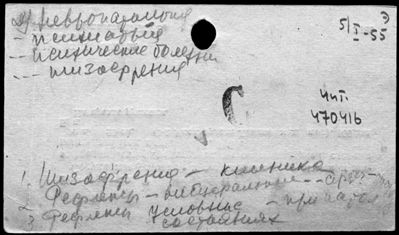 2) Невропатология
- психиатрия
- психические болезни
- - - шизофрения
5/I-55
3)
Чит.
470416
1. Шизофрения - клиника
2. Рефлексы - висцеральные -
3. Рефлексы условные - при
состояниях